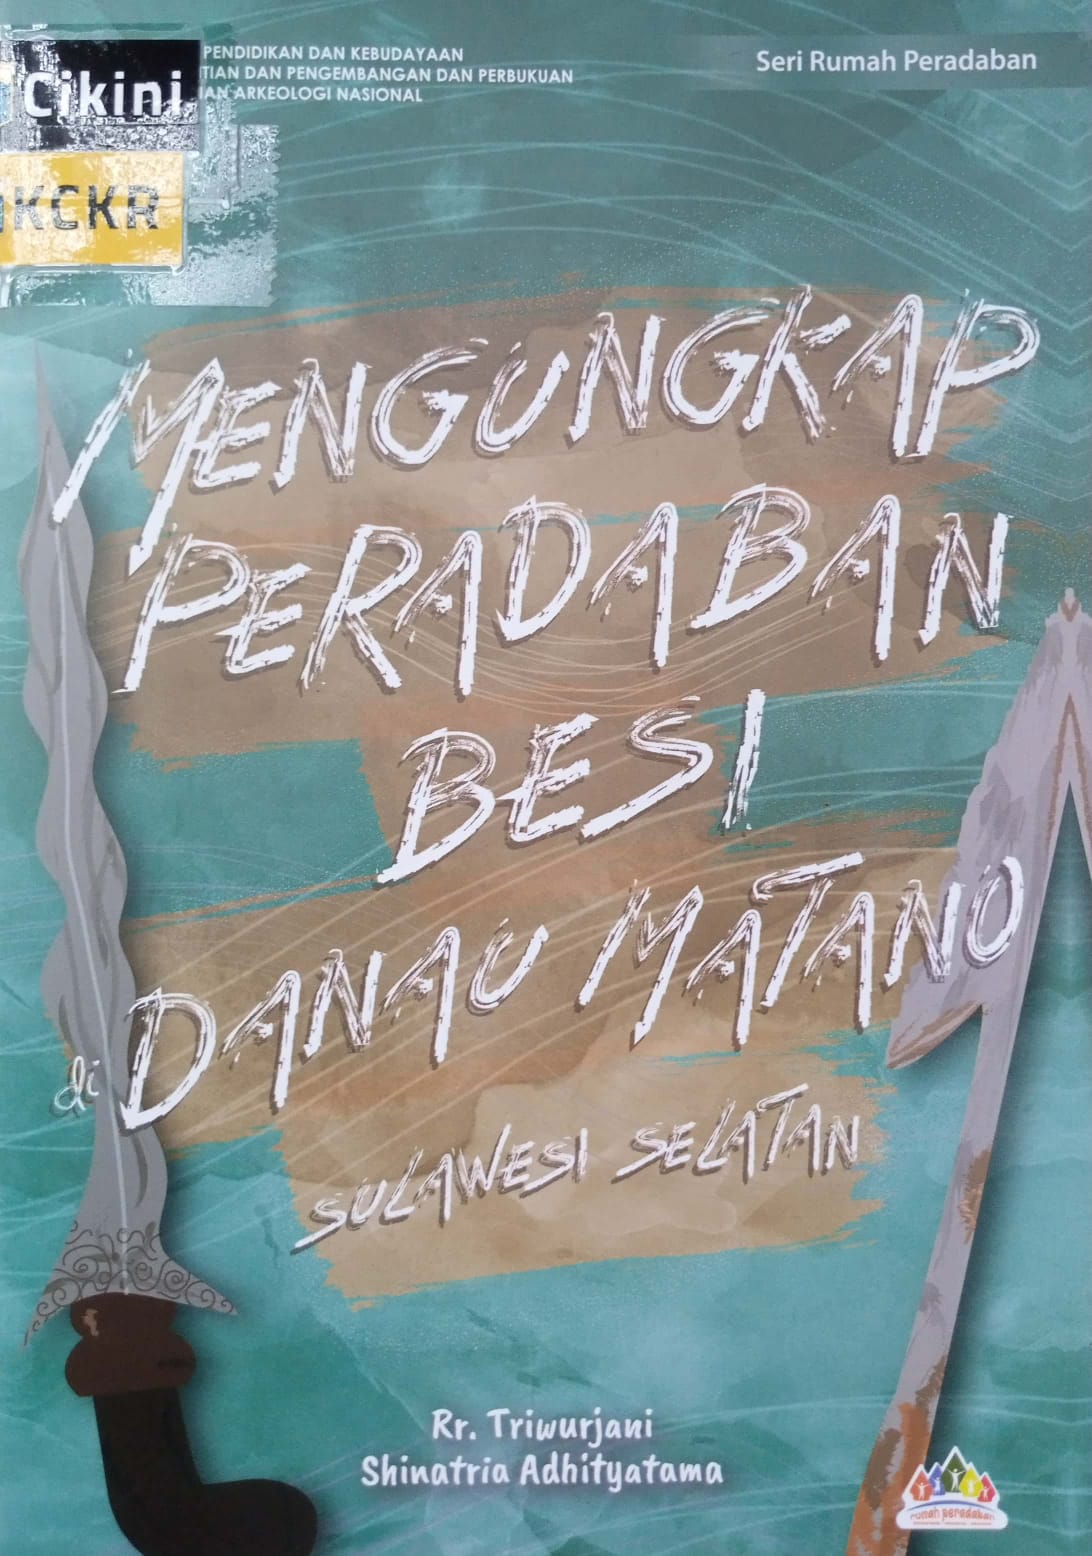 Cikini
KCKR
PENDIDIKAN DAN KEBUDAYAAN
DAN PENGEMBANGAN DAN PERBUKUAN
ARKEOLOGI NASIONAL
Seri Rumah Peradaban
MENGUNGKAP
PERADABAN
BESI
di DANAU MATANO
SULAWESI SELATAN
Rr. Triwurjani
Shinatria Adhityatama
rumah peradaban